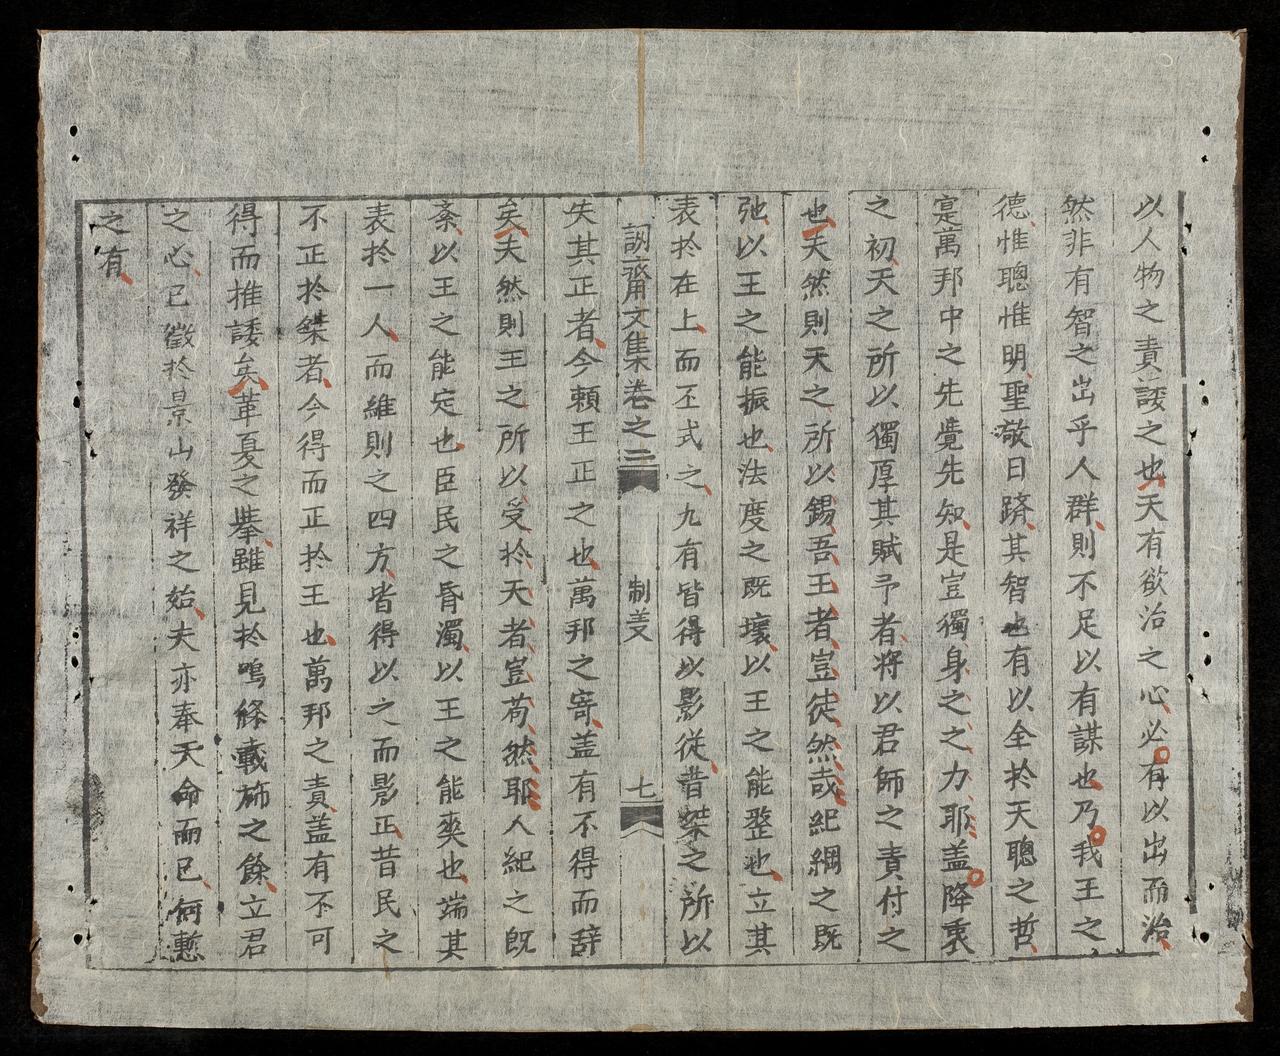 以人物之責諉之也天有欲治之心必有以出而治
然非有智之出乎人群則不足以有謀也乃我王之
德惟聰惟明聖敬日躋其智也有以全於天聰之哲
寔萬邦中之先覺先知是豈獨身之之力耶盖降衷
之初天之所以獨厚其賦予者將以君師之責付之
也夫然則天之所以錫吾王者豈徒然哉紀綱之既
弛以王之能振也法度之既壞以王之能整也立其
表於在上而丕式之九有皆得以影從昔桀之所以
訒齋文集卷之二 制義 七
失其正者今頼王正之也萬邦之寄盖有不得而辞
矣夫然則王之所以受於天者豈苟然耶人紀之既
紊以王之能定也臣民之昏濁以王之能爽也端其
表於一人而維則之四方皆得以之而影正昔民之
不正於桀者今得而正於王也萬邦之責盖有不可
得而推諉矣革夏之舉雖見於鳴條載斾之餘立君
之心已徵於景山發祥之始夫亦奉天命而已何慙
之有